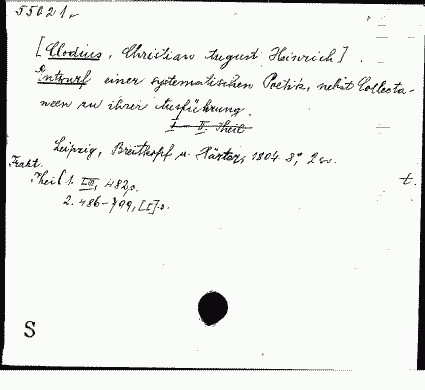 55621.
[Clodius, Christian August Heinrich]
Entwurf einer systematischen Poetik, nebst Collecta-
neen zu ihrer Ausführung.
I-II. Theil
Leipzig, Breitkopf u. Härtel, 1804. 8°, 2 v.
Frakt.
Theil 1. LII, 482 p.
t.
2. 486-799, [1] p.
S